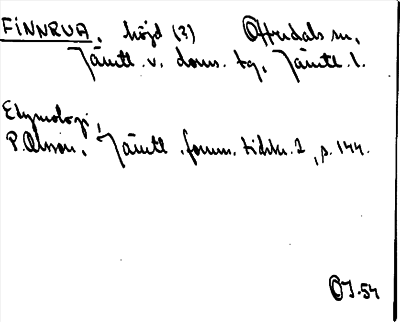 FINNRUA, höjd (?) Offerdals sn,
Jämtl. v. doms. tg, Jämtl. l.
Etymologi:
P. Olsson, Jämtl. fornm. tidskr. 2, s. 144.
OJ. 54